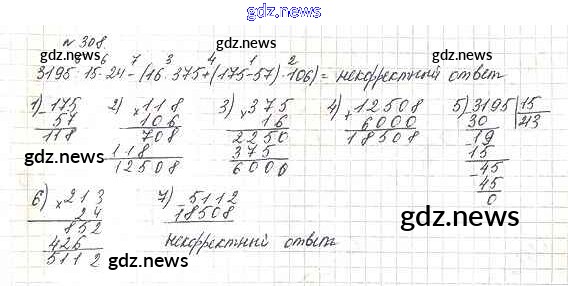 gdz.news
№ 308.
gdz.news
5 6 7 3 4 1 2
3195 : 15 · 24 - (16 · 375 + (175 - 57) · 106) = некорректный ответ
1) 175 2) × 118 3) × 375 4) + 12508 5) 3195 | 15
- 57 106 16 6000 30 213
118 708 2250 18508 - 19
118 375 15
12508 6000 - 45
45
0
gdz.news
gdz.news
6) × 213 7) - 5112
24 18508
852 некорректный ответ
426
5112
gdz.news
gdz.news
gdz.news